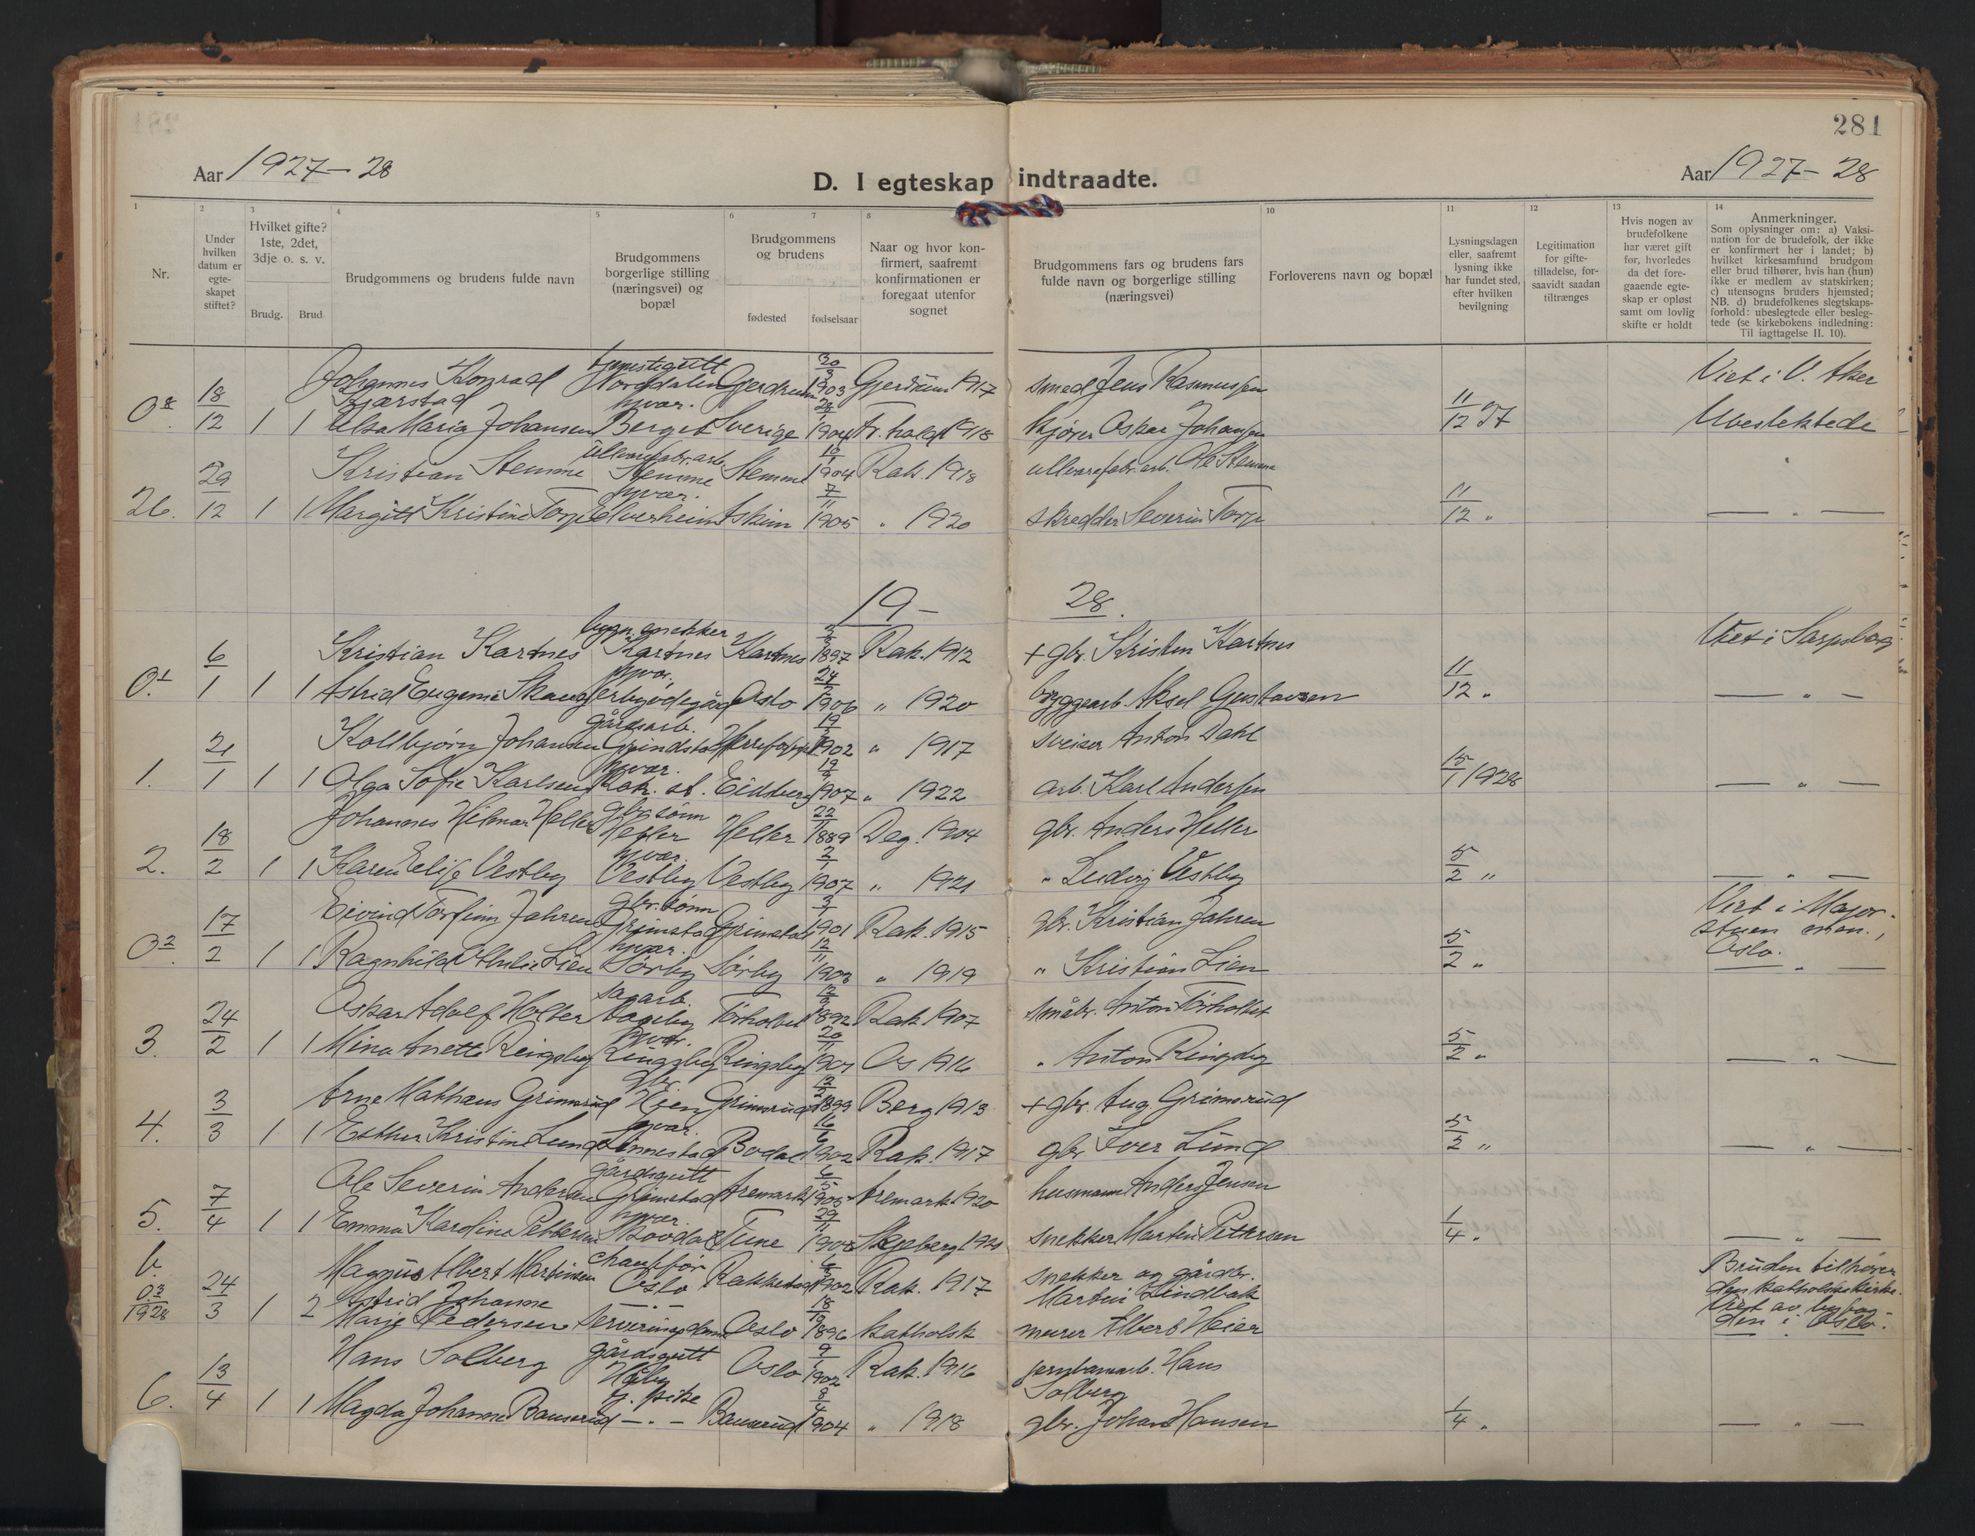 281
Aar 1927-28
D. I egteskap indtraadte.
Aar 1927-28
1 2 3 4 5 6 7 8 10 11 12 13 14
Nr.
Under hvilken datum er egte-skapet stiftet?
Hvilket gifte? 1ste, 2det, 3dje o. s. v.
Brudg. Brud
Brudgommens og brudens fulde navn
Brudgommens borgerlige stilling (næringsvei) og bopæl
Brudgommens og brudens
fødested fødselsaar
Naar og hvor kon-firmert, saafremt konfirmationen er foregaat utenfor sognet
Brudgommens fars og brudens fars fulde navn og borgerlige stilling (næringsvei)
Forloverens navn og bopæl
Lysningsdagen eller, saafremt lysning ikke har fundet sted, efter hvilken bevilgning
Legitimation for gifte-tilladelse, for-saavidt saadan tiltrænges
Hvis nogen av brudefolkene har været gift før, hvorledes da det fore-gaaende egte-skap er opløst samt om lovlig skifte er holdt
Anmerkninger.
Som oplysninger om: a) Vaksi-nation for de brudefolk, der ikke er konfirmert her i landet; b) hvilket kirkesamfund brudgom eller brud tilhører, hvis han (hun) ikke er medlem av statskirken; c) utensogns bruders hjemsted; NB. d) brudefolkenes slegtskaps-forhold: ubeslegtede eller besleg-tede (se kirkebokens indledning: Til iagttagelse II. 10).
Johannes Konrad tjenestegutt Norddalen Gjerdrum 1903 Gjerdrum 1917 smed Jens Rasmussen Viet i V. Aker
0 8 18/12 1 1 Kjærstad hjvær.
Elsa Maria Johansen Berget Sverige 1904 Fr.hald 1918 kjører Oskar Johansen 11/12 27 Ubeslektede
Kristian Stemme ullvarefabr.arb. Stemme Stemme 1904 Rak. 1918 ullvarefabr.arb. Ole Stemme
26. 29/12 1 1 Margitt Kristine Torp hjvær. Elverheim Askim 7/11 1905 " 1920 skredder Severin Torp 11/12 " — " —
19- 28.
Kristian Kartnes bygn.snekker Kartnes Kartnes 1897 Rak. 1912 + gbr. Kristen Kartnes Viet i Sarpsborg
0.1 6/1 1 1 Astrid Eugenie hjvær. Oslo 1906 " 1920 byggearb. Aksel Gustavsen 11/12 " — " —
Kollbjørn Johansen gårdsarb. Grindstad 1902 " 1917 sveiser Anton Dahl
1. 21/1 1 1 Olga Sofie Karlsen hjvær. Rak. st. Eidsberg 1907 " 1922 arb. Karl Andersen 15/1 1928 — " —
Johannes Hilmar Heller gbr. sønn Heller Heller 1889 Deg. 1904 gbr. Anders Heller
2. 18/2 1 1 Karen Elise Vestby hjvær. Vestby Vestby 1907 " 1921 " Ludvig Vestby 5/2 " — " —
Eivind Torfinn Jahren gbr. sønn Grimstad Grimstad 1901 Rak. 1915 gbr. Kristian Jahren Viet i Major-
0 2 17/2 1 1 Ragnhild Othilie Lien hjvær. Sørby Sørby 12/11 1903 " 1919 " Kristian Lien 5/2 " stuen men., Oslo. — " —
Oskar Adolf Holter sagarb. Tørholtet 1892 Rak. 1907 småbr. Anton Tørholtet
3. 24/2 1 1 Mina Anette Ringsby hjvær. Ringsby Ringsby 1901 Os 1916 " Anton Ringsby 5/2 " — " —
Arne Mathæus Grimsrud gbr. Hjen Grimsrud 1899 Berg 1913 + gbr. Aug Grimsrud
4. 3/3 1 1 Esther Kristine Lund hjvær. Linnestad Bodal 16/6 1902 Rak. 1917 gbr. Iver Lund 5/2 " — " —
Ole Severin Andersen gårdsgutt Grimstad Aremark 6/5 1905 Aremark 1920 husmann Anders Jensen
5. 7/4 1 1 Emma Karoline Pettersen hjvær. Skovdal Tune 29/11 1905 Skjeberg 1921 snekker Martin Pettersen 1/4 " — " —
Magnus Albert Martinsen chauffør Oslo Rakkestad 1902 Rak. 1917 snekker og gårdbr. Martin Lindbak Bruden tilhører
0 3 1928 24/3 1 2 Astrid Johanne Marie Pedersen — " — Serveringsdame Oslo 18/9 1896 katholsk murer Albert Heier den katholske kirke. Viet av byfog-den i Oslo.
Hans Solberg gårdsgutt Høiby Oslo 1902 Rak. 1916 jernbanearb. Hans Solberg
6. 13/4 1 1 Magda Johanne Bauserud tj. pike — " — Bauserud 8/4 1904 " 1918 gbr. Johan Hansen 1/4 " — " —